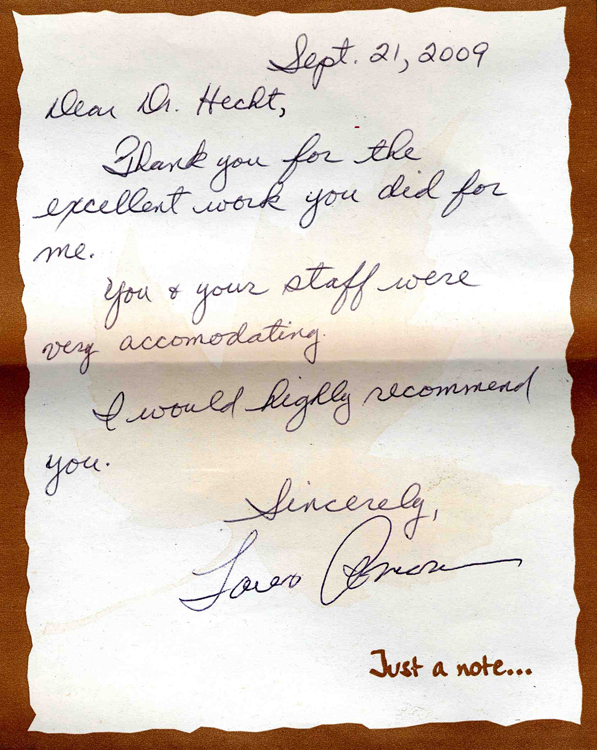 Sept. 21, 2009
Dear Dr. Hecht,
Thank you for the
excellent work you did for
me.
You & your staff were
very accomodating.
I would highly recommend
you.
Sincerely,
Just a note...